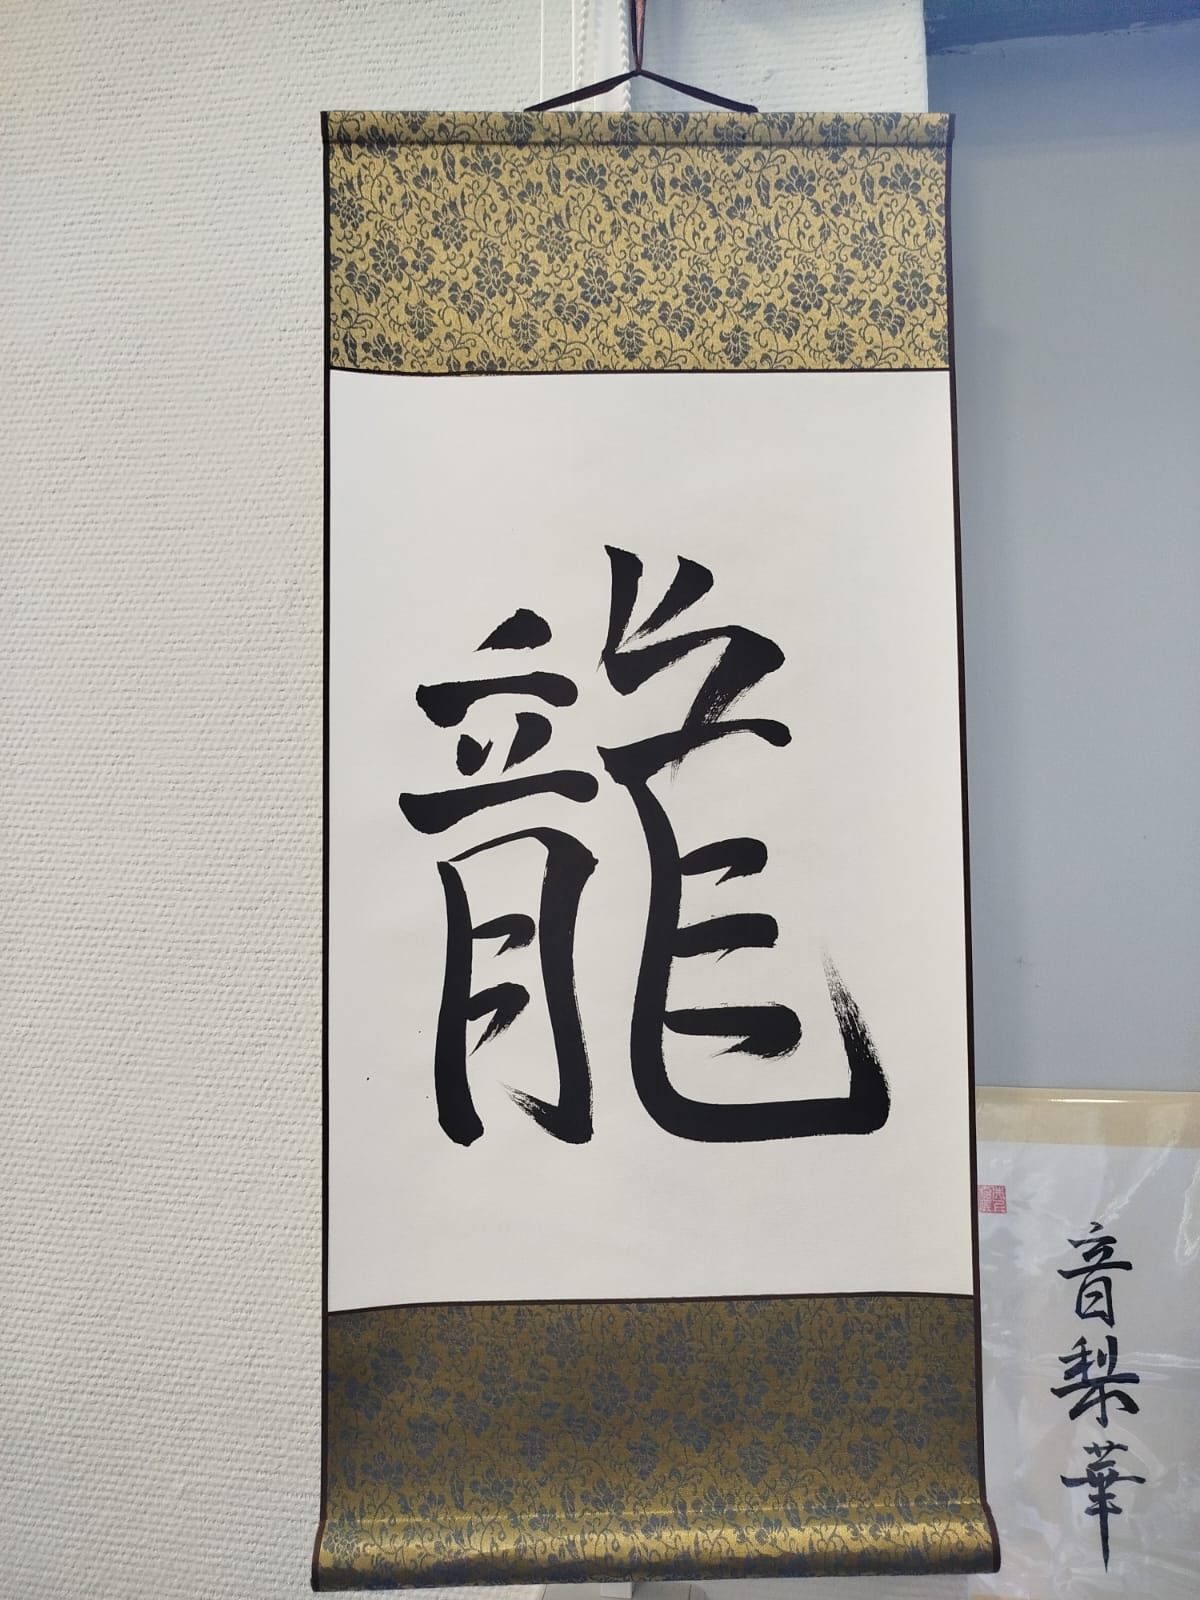 龍
音梨華